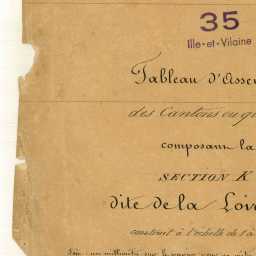 35
Ille-et-Vilaine
Tableau d'Assem
des Cantons ou qu
composant la
SECTION K
dite de la Loi
construit à l'échelle de 1 à